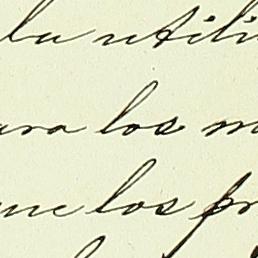 la utili
ara los m
que los pr